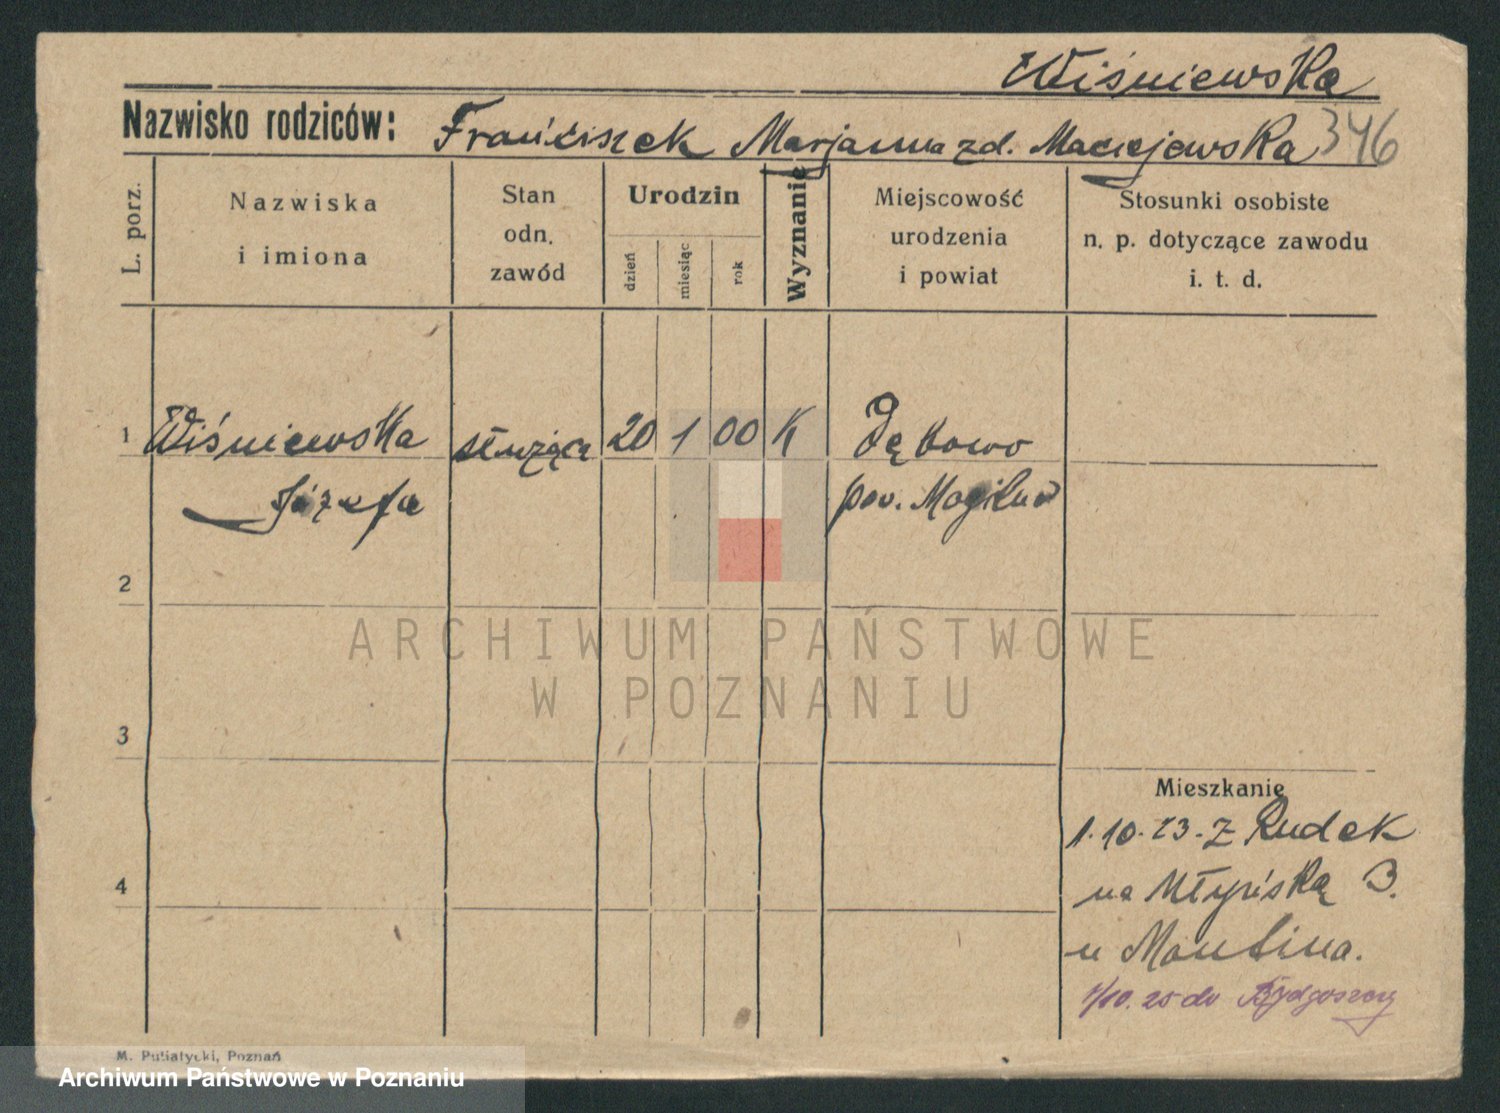 Wiśniewska
Nazwisko rodziców: Franciszek Marjanna zd. Maciejewska 346
L. porz.
Nazwiska i imiona
Stan odn. zawód
Urodzin
dzień
miesiąc
rok
Wyznanie
Miejscowość urodzenia i powiat
Stosunki osobiste n. p. dotyczące zawodu i. t. d.
1 Wiśniewska służąca 20 1 00 K Dębowo
Józefa pow. Mogilno
2
ARCHIWUM PAŃSTWOWE
W POZNANIU
3
Mieszkanie
1.10.23. z Rudek
4
na Młyńską 3.
u Mantina.
1/10. 25 do Bydgoszczy
M. Putiatycki, Poznań
Archiwum Państwowe w Poznaniu